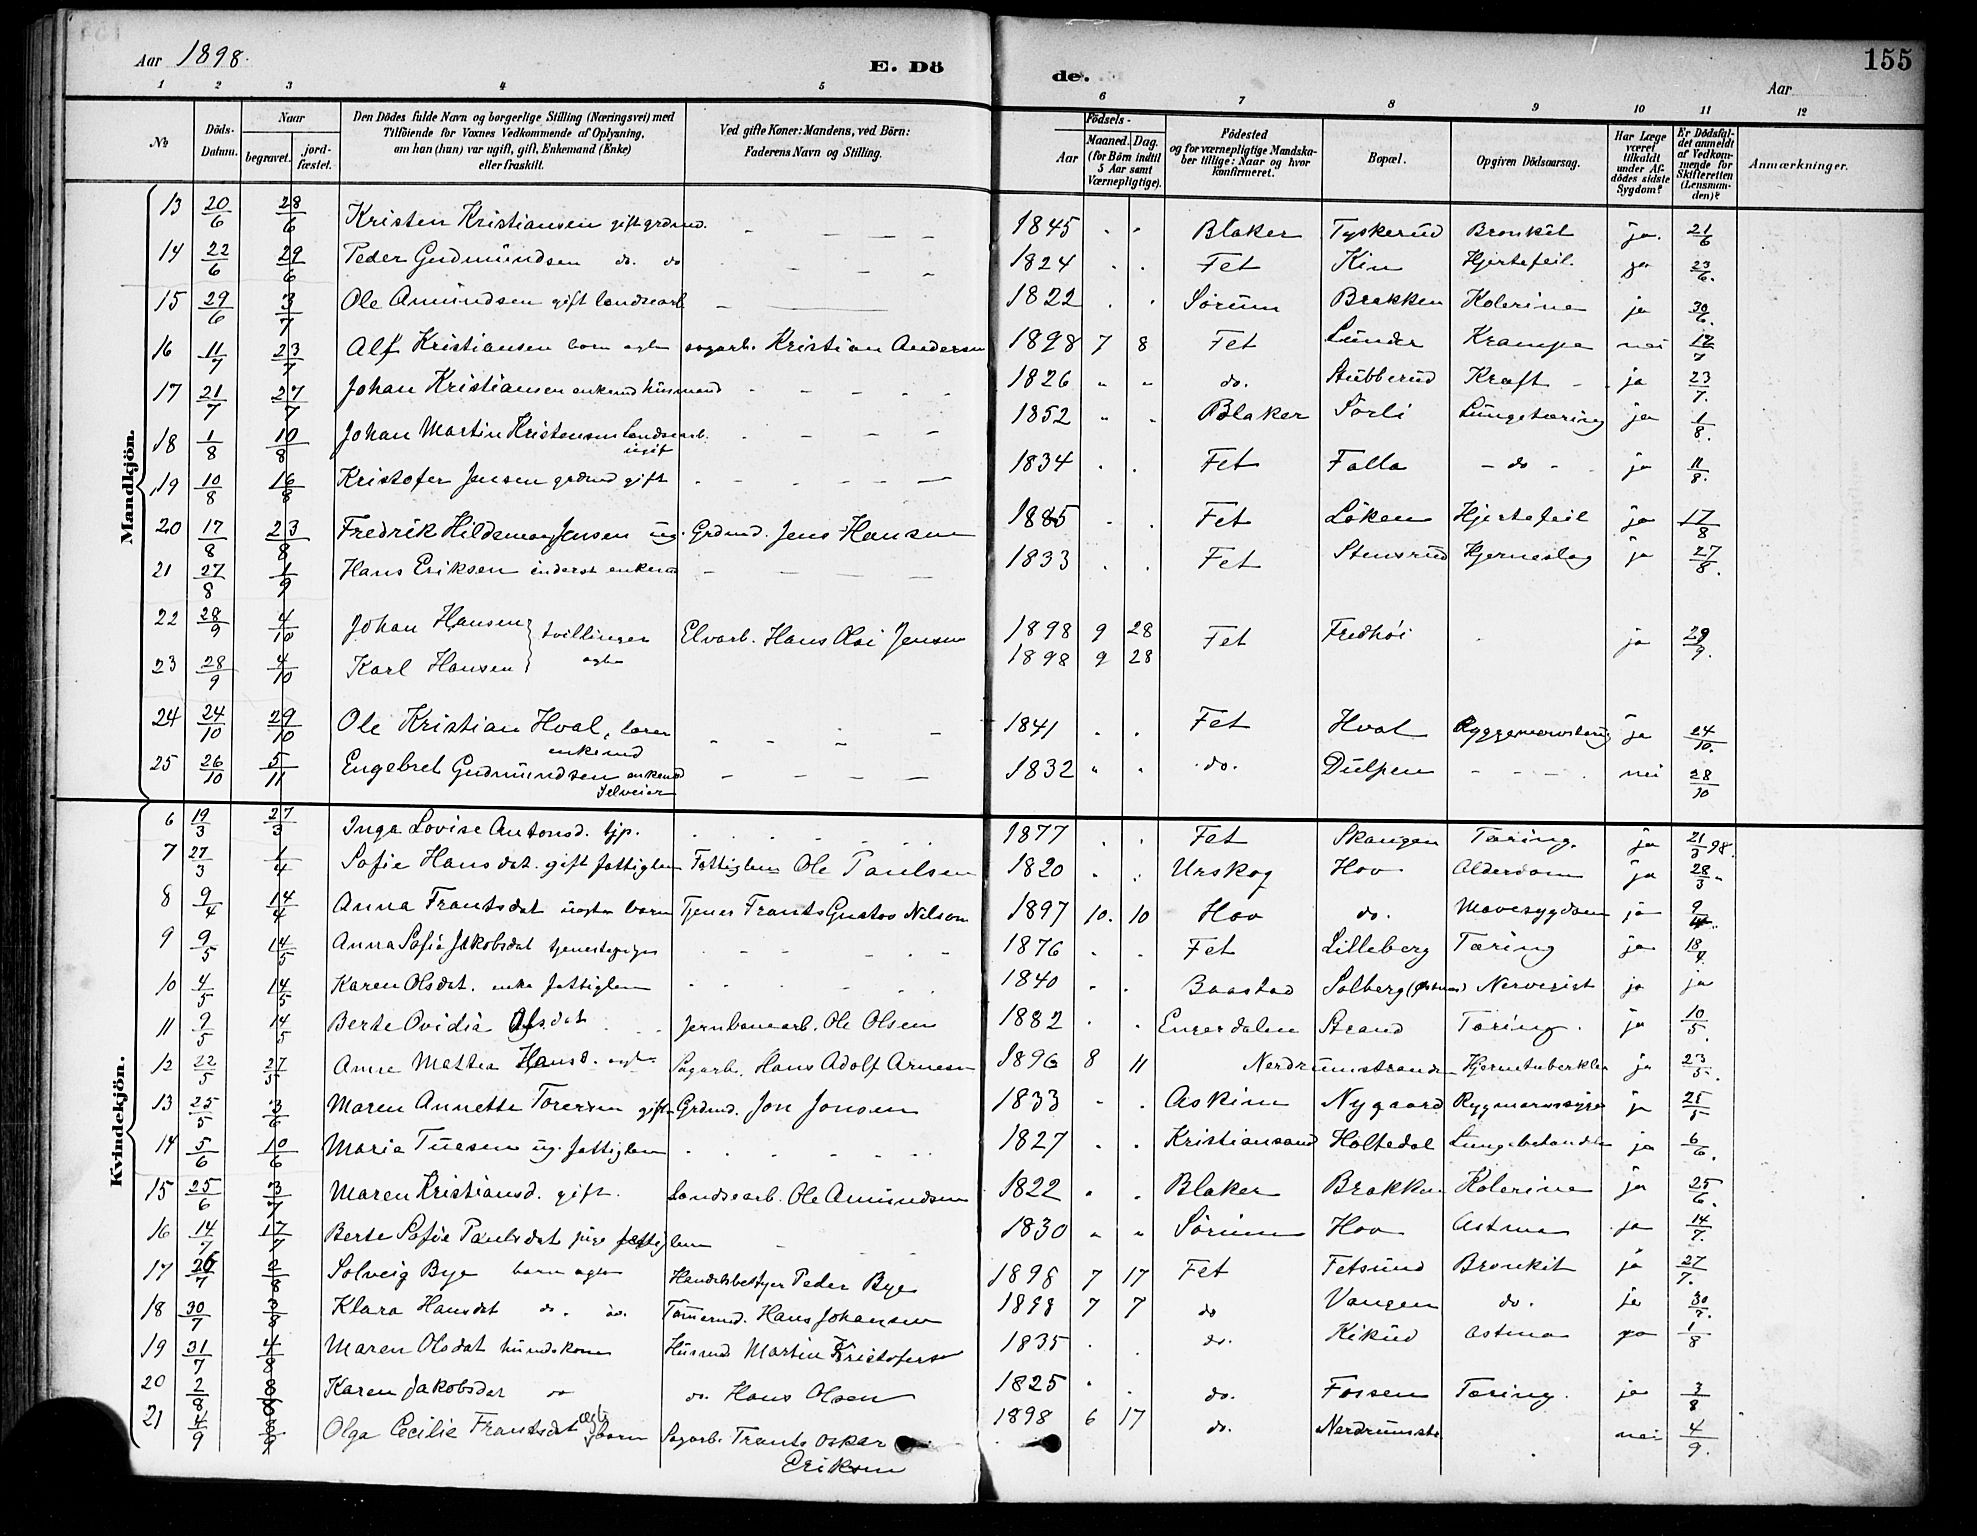 Aar 1898. E. Dö de. Aar 155
1 2 3 4 5 6 7 8 9 10 11 12
№ Döds-Datum. Naar begravet. jordfæstet. Den Dödes fulde Navn og borgerlige Stilling (Næringsvei) med Tilföiende for Voxnes Vedkommende af Oplysning, om han (hun) var ugift, gift, Enkemand (Enke) eller fraskilt. Ved gifte Koner: Mandens, ved Börn: Faderens Navn og Stilling. Födsels- Aar Maaned. Dag. (for Börn indtil 5 Aar samt Værnepligtige). Födested og for værnepligtige Mandskaber tillige: Naar og hvor konfirmeret. Bopæl. Opgiven Dödsaarsag. Har Læge været tilkaldt under Afdödes sidste Sygdom? Er Dödsfaldet anmeldt af Vedkommende for Skifteretten (Lensmanden)? Anmærkninger.
Mandkjön.
13 20/6 28/6 Kristen Kristiansen gift grdmd. 1845 Blaker Tyskerud Bronkit ja. 21/6
14 22/6 29/6 Peder Gudmundsen do. do 1824 Fet Kin Hjertefeil. ja 23/6.
15 29/6 3/7 Ole Amundsen gift landsearb 1822 Sörum Brakken Kolerine ja 30/6.
16 11/7 23/7 Alf Kristiansen barn agte sagarb. Kristian Andersen 1898 7 8 Fet Lunder Krampe nei 12/7
17 21/7 27/7 Johan Kristiansen enkemd husmand 1826 do. Stubberud Kraft ja 23/7.
18 1/8 10/8 Johan Martin Kristensen landsearb. ugift 1852 Blaker Sörli Lungetæring ja 1/8.
19 10/8 16/8 Kristofer Jensen grdmd gift 1834 Fet Falla do ja 11/8.
20 17/8 23/8 Fredrik Hildeman Jensen ug. Grdmd. Jens Hansen 1885 Fet Löken Hjertefeil ja 17/8
21 27/8 1/9 Hans Eriksen inderst enkemd 1833 Fet Stensrud Hjerneslag ja 27/8.
22 28/9 4/10 Johan Hansen } tvillinger Elvarb. Hans Olai Jensen 1898 9 28 Fet Fredhöi ja 29/9.
23 28/9 4/10 Karl Hansen } agte 1898 9 28
24 24/10 29/10 Ole Kristian Hval, lærer enkemd 1841 Fet Hval Ryggemarvstæring ja 24/10.
25 26/10 5/11 Engebret Gudmundsen enkemd selveier 1832 do. Dulpen nei 28/10
Kvindekjön.
6 19/3 27/3 Inga Lovise Antonsd. tjp. 1877 Fet Skangen Tæring. ja 21/3 98.
7 27/3 1/4 Sofie Hansdat. gift fattiglem Fattiglem Ole Paulsen 1820 Urskog Hov Alderdom ja 28/3
8 9/4 14/4 Anna Frantsdat uagte barn Tjener Frants Gustav Nilsen 1897 10. 10 Hov do. Mavesygdom ja 9/4.
9 9/5 14/5 Anna Sofie Jakobsdat tjenestepige 1876 Fet Lilleberg Tæring ja
10 4/5 14/5 Karen Olsdat. enke fattiglem 1840 Baastad Solberg Nervegigt ja ja
11 9/5 14/5 Berte Ovidia Olsdat Jernbanearb. Ole Olsen 1882 Engerdalen Strand Tæring. ja 10/5.
12 22/5 27/5 Anne Mathea Hansd. agte Sagarb. Hans Adolf Arnesen 1896 8 11 Nerdrumstranden Hjernetuberkler ja 23/5.
13 25/5 3/6 Maren Annette Toresen gift Grdmd. Jon Jonsen 1833 Askim Nygaard ja 25/5
14 5/6 10/6 Maria Tuesen ug. fattiglem 1827 Kristiansand Holtedal ja 6/6.
15 25/6 3/7 Maren Kristiansd. gift. Landsearb. Ole Amundsen 1822 Blaker Brakken Kolerine ja 25/6.
16 14/7 17/7 Berte Sofie Paulsdat pige fattiglem 1830 Sörum Hov Astma ja 14/7.
17 26/7 2/8 Solveig Bye barn agte Handelsbestyer Peder Bye 1898 7 17 Fet Fetsund Bronkit ja 27/7.
18 30/7 3/8 Klara Hansdat do. do. Tömermd. Hans Johansen 1898 7 7 do Vangen do. ja 30/7.
19 31/7 4/8 Maren Olsdat husmdskone Husmd Martin Kristofersen 1835 do. Kikud Astma ja 1/8
20 2/8 8/8 Karen Jakobsdat do do. Hans Olsen 1825 do. Fossen Tæring. ja 3/8
21 4/9 8/9 Olga Cecilie Frantsdat agte barn Sagarb. Frants Oskar Eriksen 1898 6 17 do. Nerdrumstr nei 4/9.